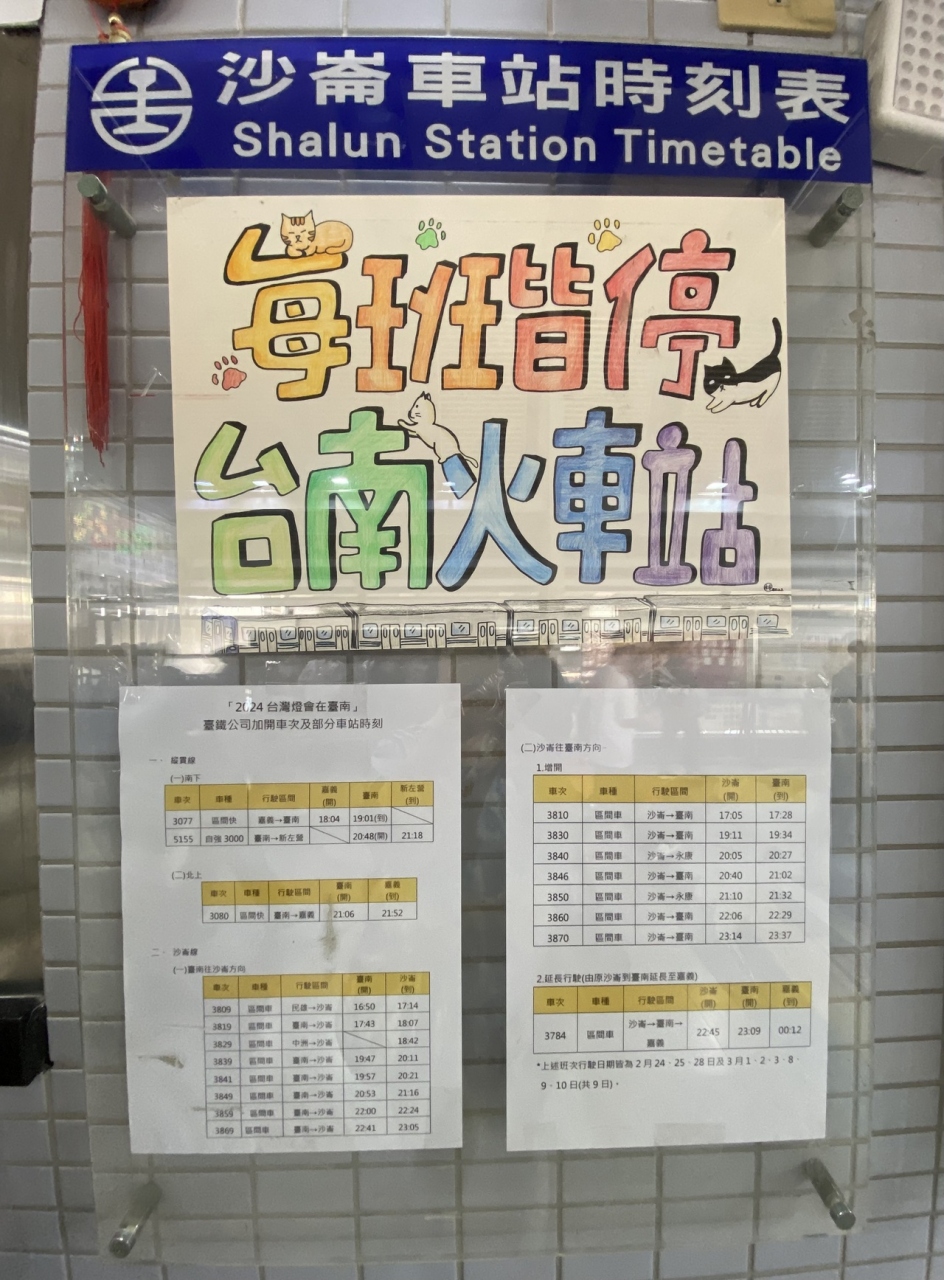 沙崙車站時刻表
Shalun Station Timetable
每班皆停
台南火車站
「2024 台灣燈會在臺南」
臺鐵公司加開車次及部分車站時刻
一、 縱貫線
(一)南下
車次 車種 行駛區間 嘉義(開) 臺南 新左營(到)
3077 區間快 嘉義→臺南 18:04 19:01(到)
5155 自強 3000 臺南→新左營 20:48(開) 21:18
(二)北上
車次 車種 行駛區間 臺南(開) 嘉義(到)
3080 區間快 臺南→嘉義 21:06 21:52
二、 沙崙線
(一)臺南往沙崙方向
車次 車種 行駛區間 臺南(開) 沙崙(到)
3809 區間車 民雄→沙崙 16:50 17:14
3819 區間車 臺南→沙崙 17:43 18:07
3829 區間車 中洲→沙崙 18:42
3839 區間車 臺南→沙崙 19:47 20:11
3841 區間車 臺南→沙崙 19:57 20:21
3849 區間車 臺南→沙崙 20:53 21:16
3859 區間車 臺南→沙崙 22:00 22:24
3869 區間車 臺南→沙崙 22:41 23:05
(二)沙崙往臺南方向
1.增開
車次 車種 行駛區間 沙崙(開) 臺南(到)
3810 區間車 沙崙→臺南 17:05 17:28
3830 區間車 沙崙→臺南 19:11 19:34
3840 區間車 沙崙→永康 20:05 20:27
3846 區間車 沙崙→臺南 20:40 21:02
3850 區間車 沙崙→永康 21:10 21:32
3860 區間車 沙崙→臺南 22:06 22:29
3870 區間車 沙崙→臺南 23:14 23:37
2.延長行駛(由原沙崙到臺南延長至嘉義)
車次 車種 行駛區間 沙崙(開) 臺南(開) 嘉義(到)
3784 區間車 沙崙→臺南→嘉義 22:45 23:09 00:12
*上述班次行駛日期皆為 2 月 24、25、28 日及 3 月 1、2、3、8、
9、10 日(共 9 日)。